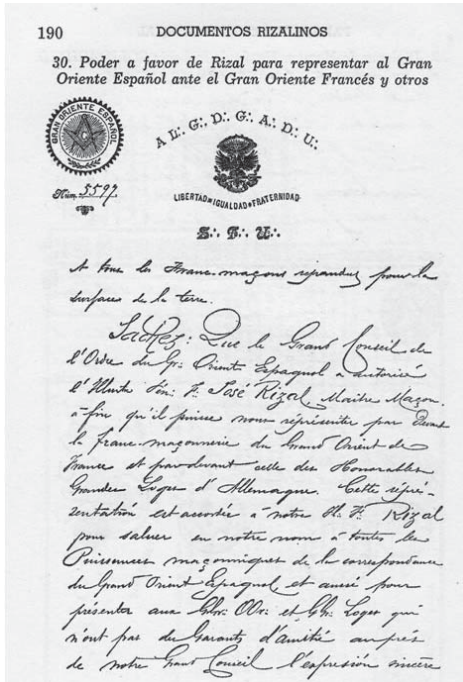 190 DOCUMENTOS RIZALINOS
30. Poder a favor de Rizal para representar al Gran
Oriente Español ante el Gran Oriente Francés y otros
GRAN ORIENTE ESPAÑOL
A L∴ G∴ D∴ G∴ A∴ D∴ U∴
Núm. 5597.
LIBERTAD=IGUALDAD=FRATERNIDAD
S∴ F∴ U∴
A tous les Franc-maçons répandus pour la
surface de la terre.
Sachez: Que le Grand Conseil de
l'Ordre du Gr. Orient Espagnol a autorisé
l'Illustre F. José Rizal, Maître Maçon.
à fin qu'il puisse nous réprésenter par devant
la franc-maçonnerie du Grand Orient de
France et par-devant celle des Honorables
Grandes Loges d'Allemagne. Cette répré-
sentation est accordée à notre Ill. F. Rizal
pour saluer en notre nom à toutes les
Puissances maçonniques de la correspondance
du Grand Orient Espagnol, et aussi pour
présenter aux GGr. OOr. et GGr. Loges qui
n'ont pas du Garants d'amitié auprés
de notre Grand Conseil l'expresión sincère